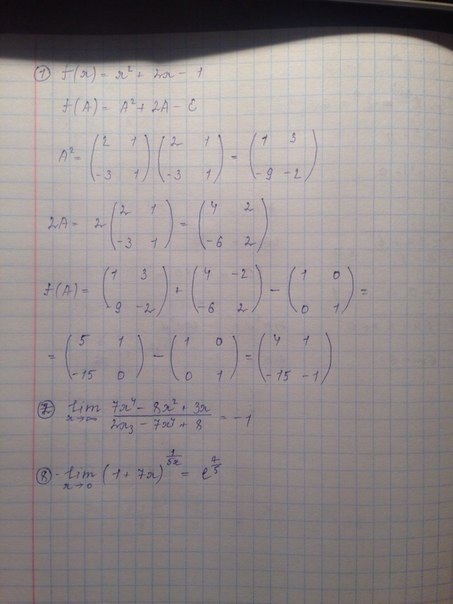 ① f(x) = x² + 2x - 1
f(A) = A² + 2A - E
A² = (2 1; -3 1) (2 1; -3 1) = (1 3; -9 -2)
2A = 2 (2 1; -3 1) = (4 2; -6 2)
f(A) = (1 3; -9 -2) + (4 -2; -6 2) - (1 0; 0 1) =
= (5 1; -15 0) - (1 0; 0 1) = (4 1; -15 -1)
⑦ lim x→∞ (7x⁴ - 8x² + 3x)/(2x₃ - 7x⁴ + 8) = -1
⑧ lim x→0 (1 + 7x)^(1/5x) = e^(7/5)